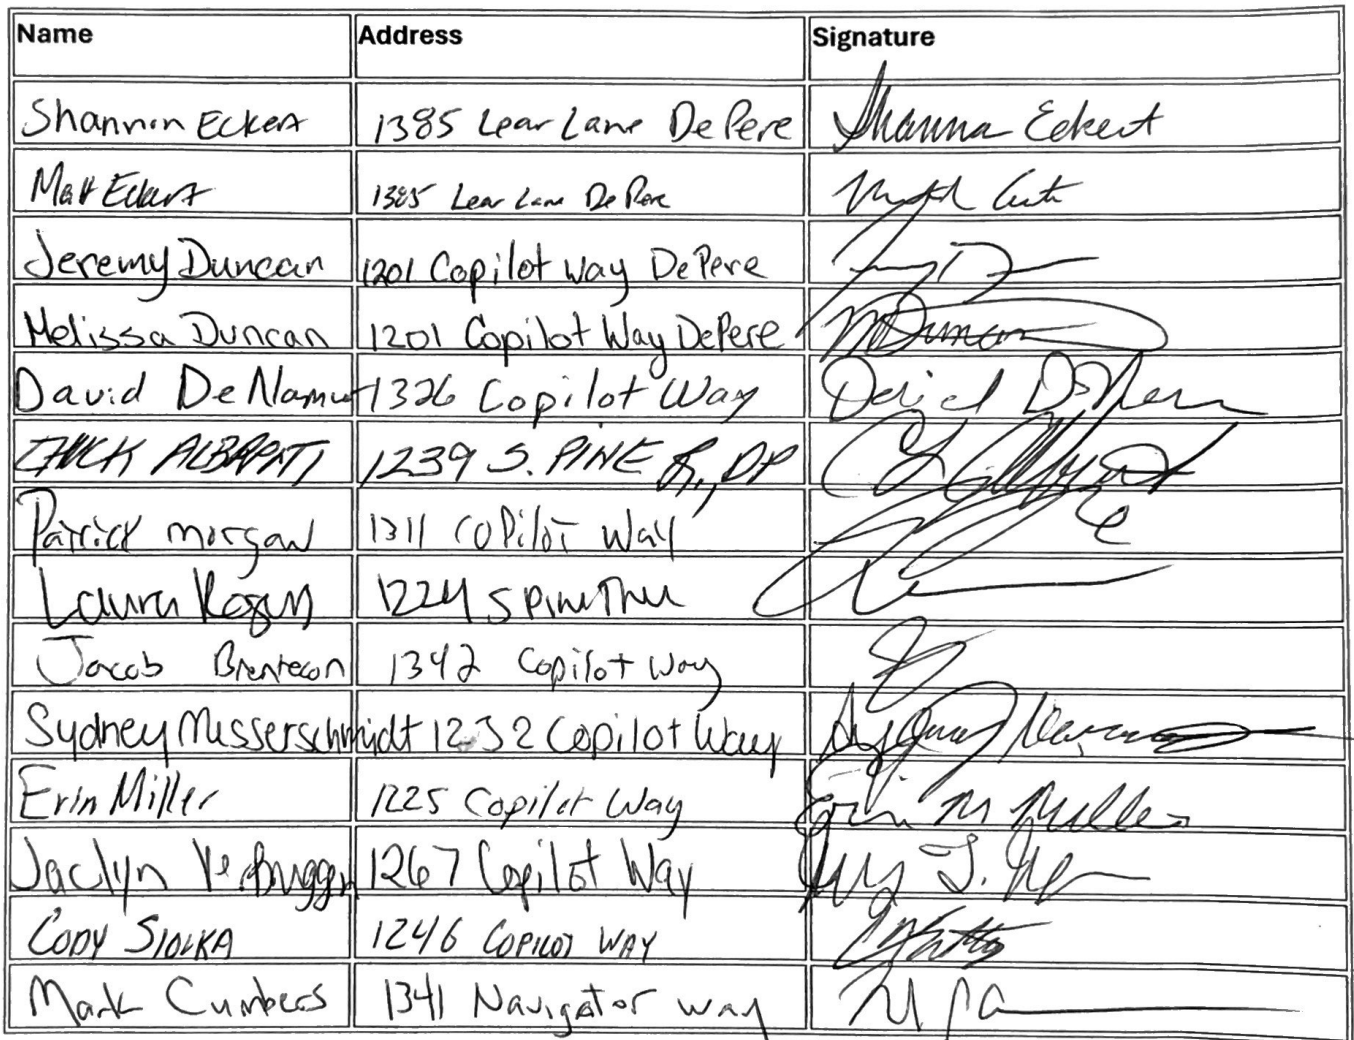 Name Address Signature
Shannon Eckert 1385 Lear Lane De Pere Shanna Eckert
Matt Eckert 1385 Lear Lane De Pere
Jeremy Duncan 1201 Copilot Way De Pere
Melissa Duncan 1201 Copilot Way DePere MDuncan
David DeNamur 1326 Copilot Way David DeNam
CHUCK ALBAPATI 1239 S. PINE DP
Patrick Morgan 1311 Copilot Way
Laura 1224 S Pine
Jacob 1342 Copilot Way
Sydney Messerschmidt 1232 Copilot Way Sydney
Erin Miller 1225 Copilot Way Erin M Miller
Jaclyn 1267 Copilot Way
CODY 1246 COPILOT WAY
Mark Cumbers 1341 Navigator Way